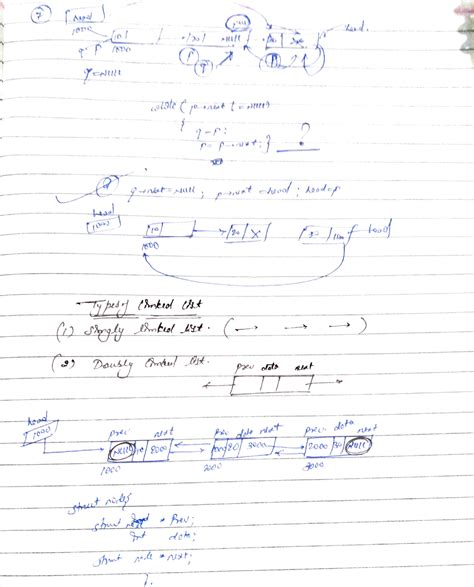 7) head
1000
10
1000
20
NULL
30
head.
q p
q = NULL
p q
while ( p→next != NULL)
{ q = p;
p = p→next; } ?
q→next = NULL; p→next = head; head = p
head
1000
10
20 X
30 1000 head
1000
Types of linked list
(1) Singly linked list. ( → → → )
(2) Doubly linked list.
prev data next
head
1000
prev next prev data next prev data next
NULL 10 2000 1000 20 3000 2000 30 NULL
1000 2000 3000
struct node {
struct node * prev;
int data;
struct node * next;
}.